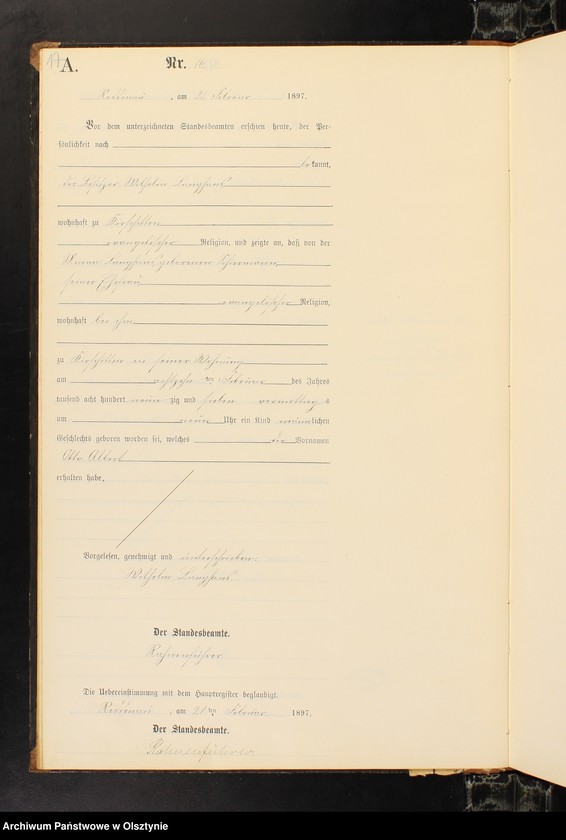 17
A. Nr.
, am 21 Februar 1897.
Vor dem unterzeichneten Standesbeamten erschien heute, der Per-
sönlichkeit nach
bekannt,
der Besitzer Wilhelm Langhans
wohnhaft zu Kerschitten
evangelischer Religion, und zeigte an, daß von der
Langhans geborenen
seiner Ehefrau
evangelischer Religion,
wohnhaft bei ihm
zu Kerschitten in seiner Wohnung
am achtzehn ten Februar des Jahres
tausend acht hundert neun zig und sieben vormittag s
um neun Uhr ein Kind männlichen
Geschlechts geboren worden sei, welches die Vornamen
Otto Albert
erhalten habe.
Vorgelesen, genehmigt und unterschrieben.
Wilhelm Langhans
Der Standesbeamte.
Rahnenführer
Die Uebereinstimmung mit dem Hauptregister beglaubigt.
, am 21 ten Februar 1897.
Der Standesbeamte.
Rahnenführer
Archiwum Państwowe w Olsztynie